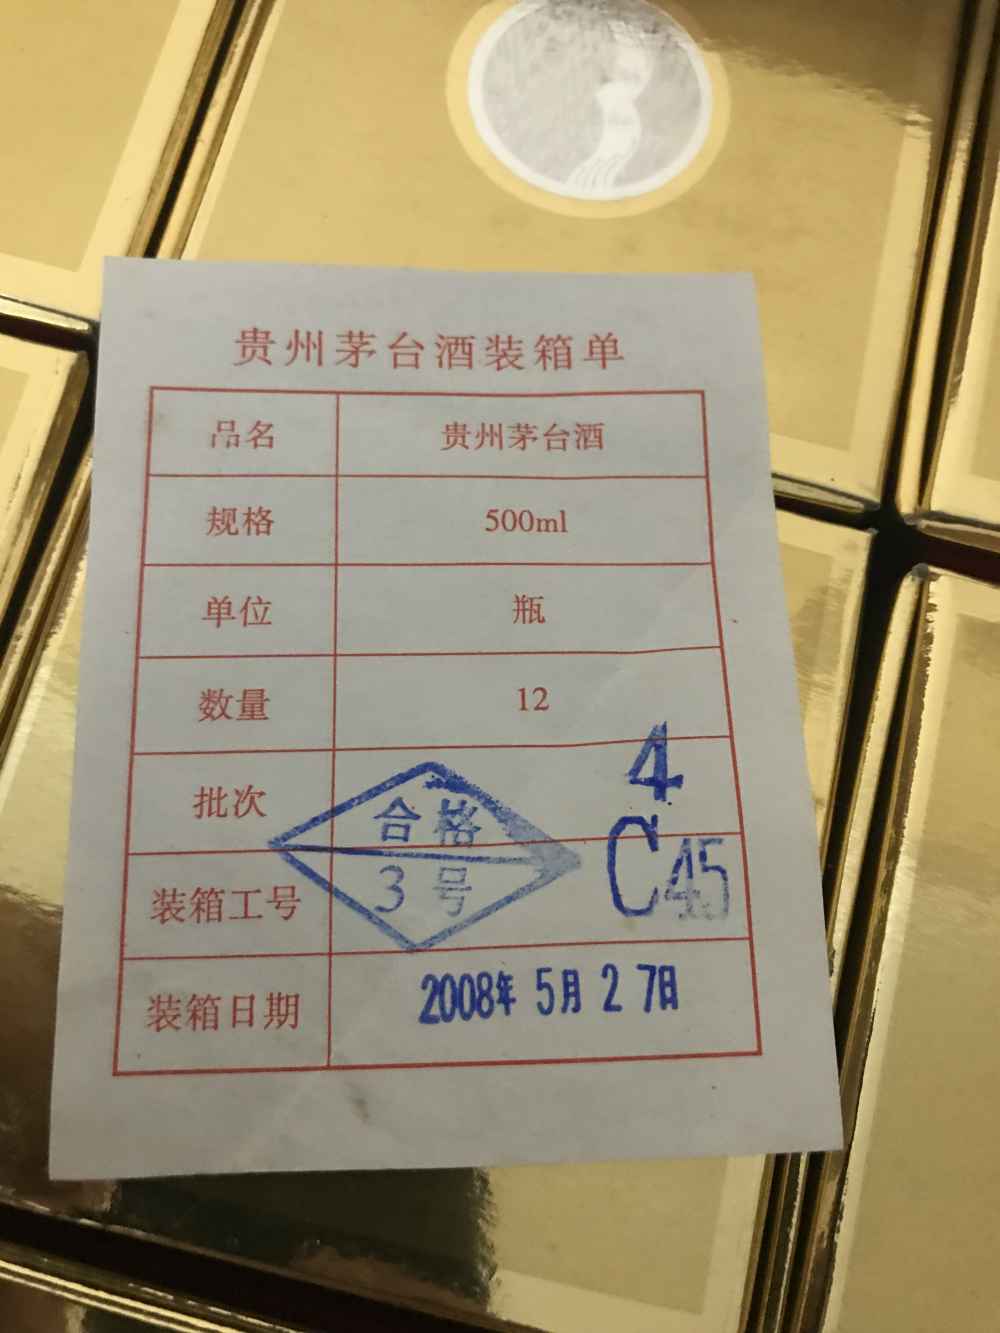 贵州茅台酒装箱单
品名 贵州茅台酒
规格 500ml
单位 瓶
数量 12
批次 4
合格
3号
装箱工号 C45
装箱日期 2008年 5月 2 7日